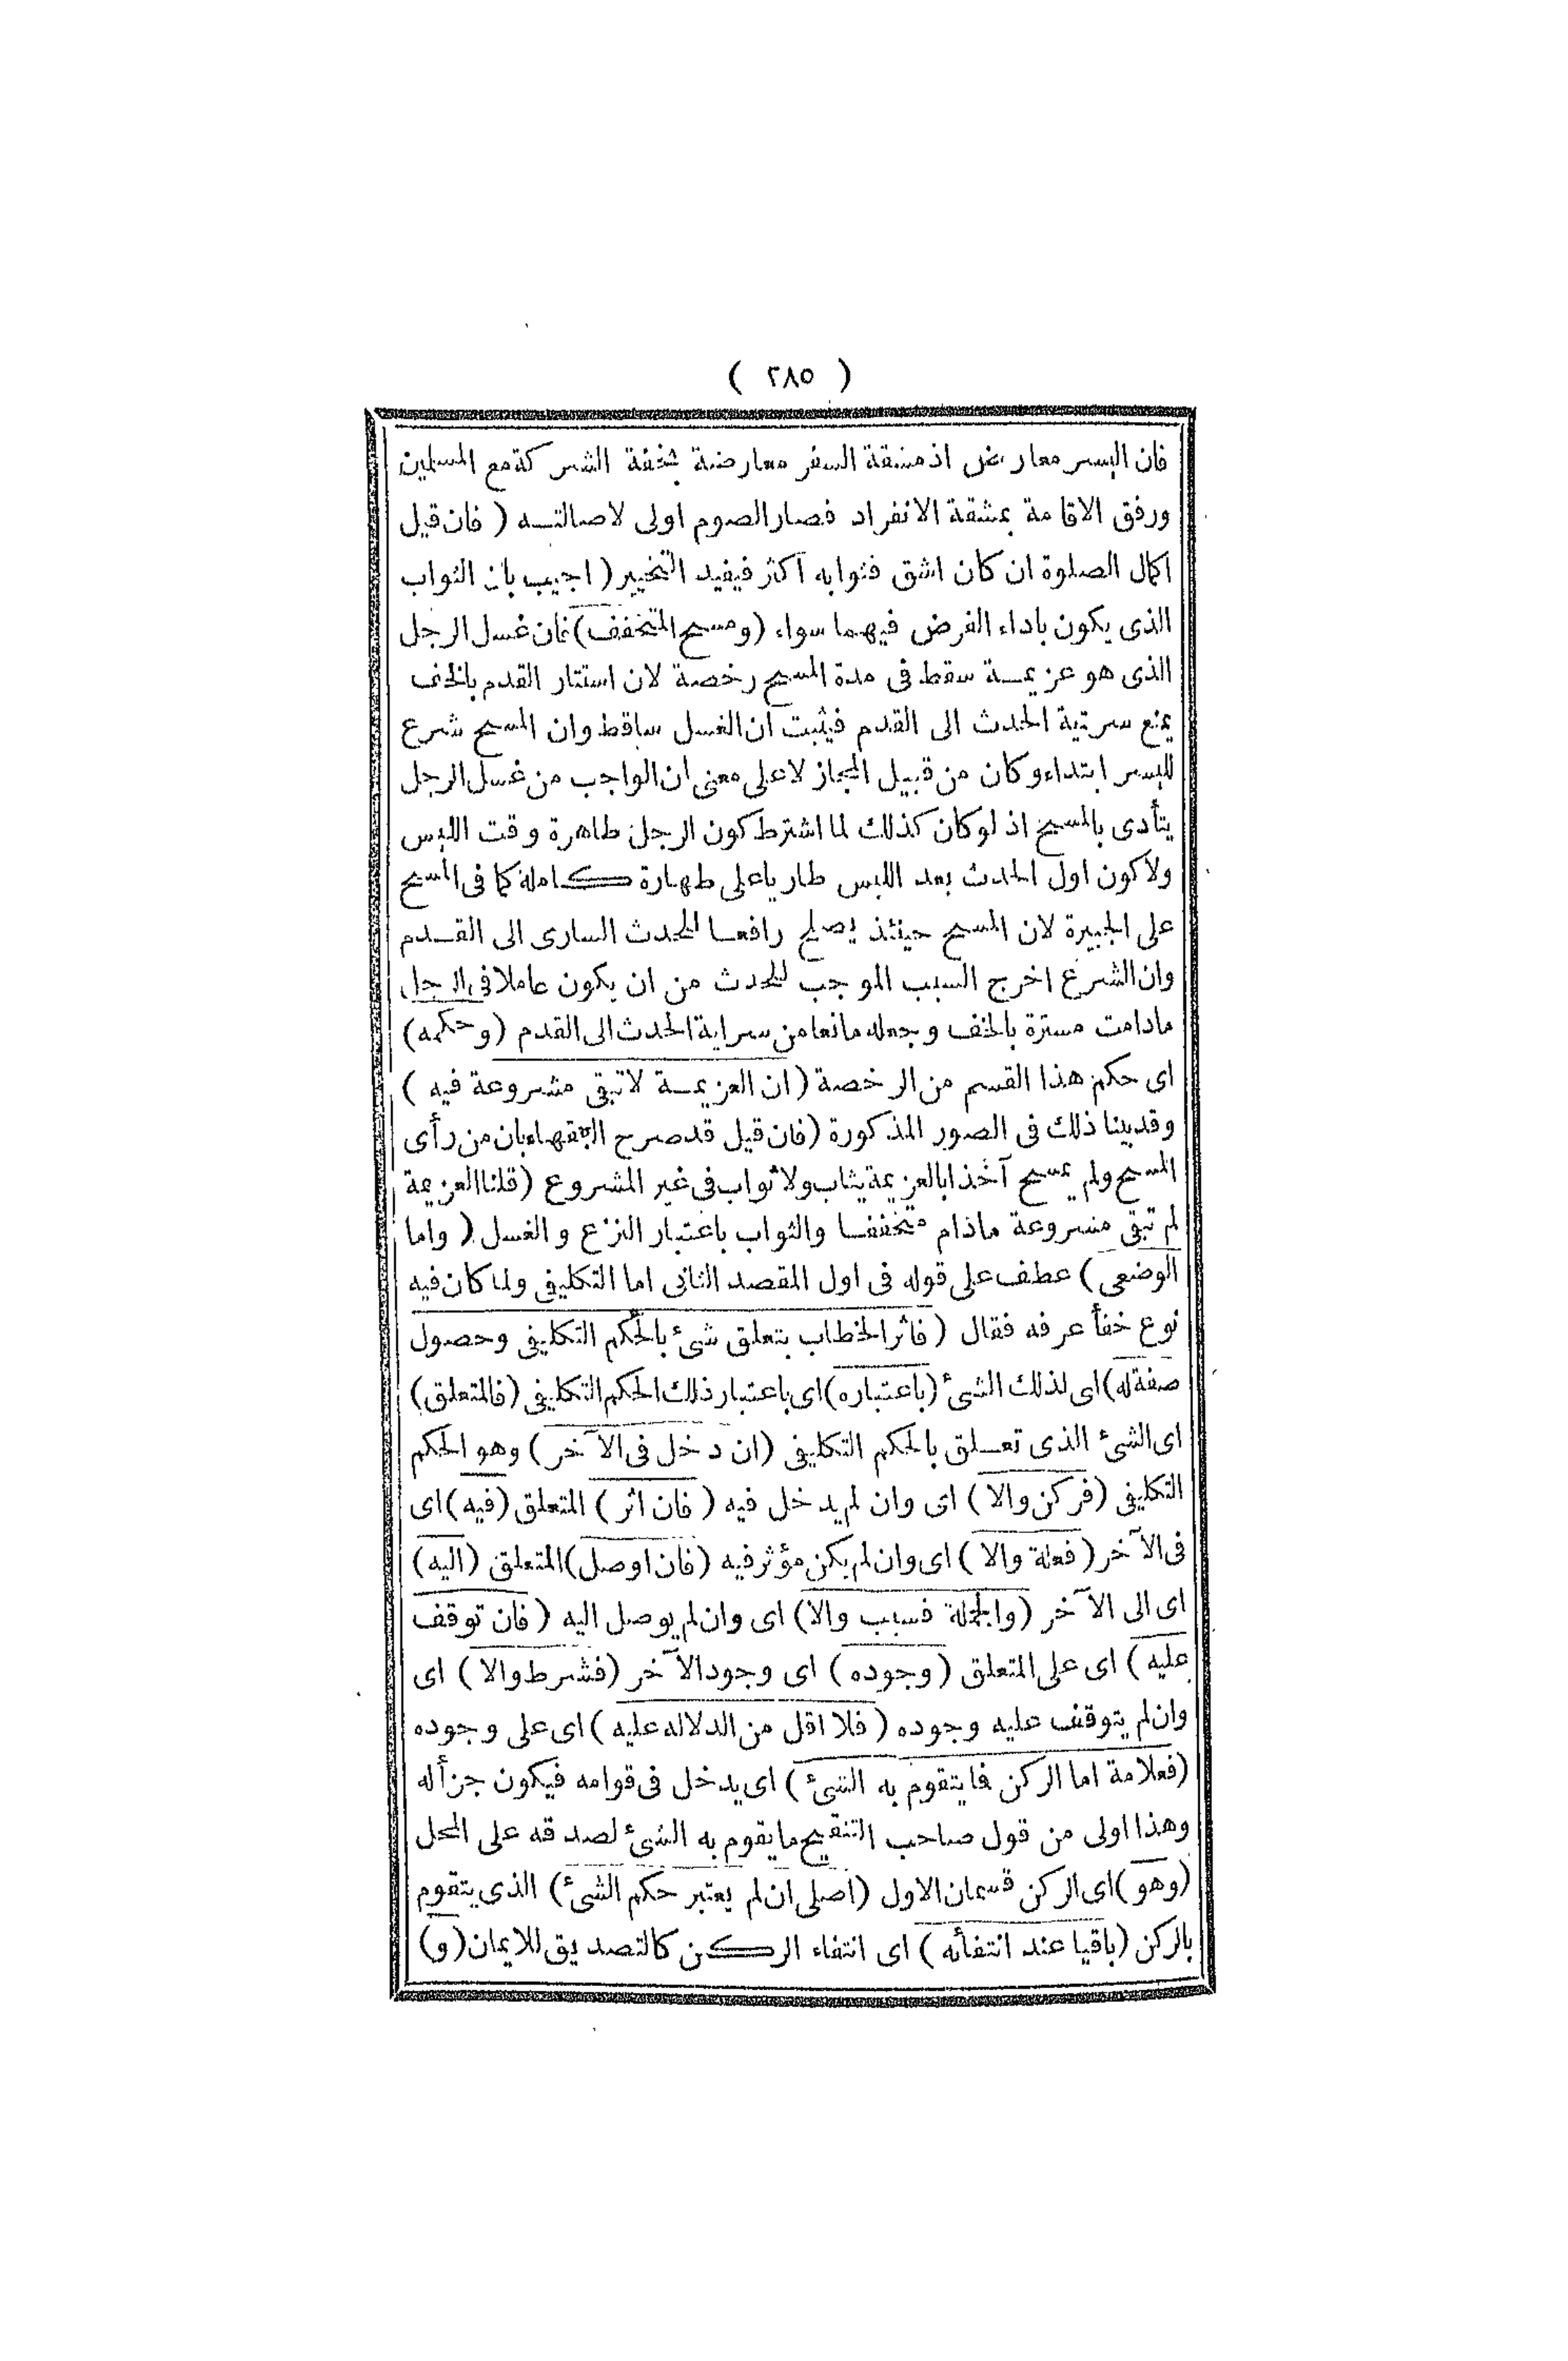 ( ٢٨٥ )
فان اليسر معارض اذ مشقة السفر معارضة بخفة الشركة مع المسلمين
ورفق الاقامة بمشقة الانفراد فصار الصوم اولى لاصالته ( فان قيل
اكمال الصلوة ان كان اشق فثوابه اكثر فيفيد التخيير ( اجيب بان الثواب
الذى يكون باداء الفرض فيهما سواء (ومسح المتخفف) فان غسل الرجل
الذى هو عزيمة سقط فى مدة المسح رخصة لان استتار القدم بالخف
يمنع سرتية الحدث الى القدم فيثبت ان الغسل ساقط وان المسح شرع
لليسر ابتداء وكان من قبيل المجاز لا على معنى ان الواجب من غسل الرجل
يتأدى بالمسح اذ لو كان كذلك لما اشترط كون الرجل طاهرة وقت اللبس
ولا كون اول الحدث بعد اللبس طاريا على طهارة كاملة كما فى المسح
على الجبيرة لان المسح حينئذ يصلح رافعا للحدث السارى الى القدم
وان الشرع اخرج السبب الموجب للحدث من ان يكون عاملا فى الرجل
مادامت مستترة بالخف وجعله مانعا من سراية الحدث الى القدم (وحكمه)
اى حكم هذا القسم من الرخصة ( ان العزيمة لا تبقى مشروعة فيه )
وقد بينا ذلك فى الصور المذكورة (فان قيل قد صرح الفقهاء بان من رأى
المسح ولم يمسح آخذا بالعزيمة يثاب ولا ثواب فى غير المشروع (قلنا العزيمة
لم تبق مشروعة مادام متخففا والثواب باعتبار النزع والغسل ( واما
الوضعى ) عطف على قوله فى اول المقصد الثانى اما التكليفى ولما كان فيه
نوع خفأ عرفه فقال ( فاثر الخطاب بتعلق شئ بالحكم التكليفى وحصول
صفة له) اى لذلك الشئ (باعتباره) اى باعتبار ذلك الحكم التكليفى (فالمتعلق)
اى الشئ الذى تعلق بالحكم التكليفى (ان دخل فى الآخر) وهو الحكم
التكليفى (فركن والا ) اى وان لم يدخل فيه ( فان اثر ) المتعلق (فيه) اى
فى الآخر ( فعلة والا ) اى وان لم يكن مؤثر فيه (فان اوصل) المتعلق (اليه)
اى الى الآخر (وابالجملة فسبب والا) اى وان لم يوصل اليه ( فان توقف
عليه ) اى على المتعلق ( وجوده ) اى وجود الآخر (فشرط والا ) اى
وان لم يتوقف عليه وجوده ( فلا اقل من الدلاله عليه ) اى على وجوده
(فعلامة اما الركن فما يتقوم به الشئ ) اى يدخل فى قوامه فيكون جزأله
وهذا اولى من قول صاحب التنقيح ما يقوم به الشئ لصدقه على المحل
(وهو) اى الركن قسمان الاول (اصلى ان لم يعتبر حكم الشئ) الذى يتقوم
بالركن (باقيا عند انتفأه ) اى انتفاء الركن كالتصديق للايمان (و)